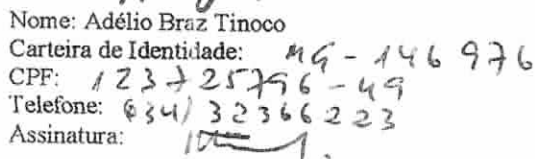 Nome: Adélio Braz Tinoco
Carteira de Identidade: MG - 146 976
CPF: 123725796-49
Telefone: (34) 32366223
Assinatura: